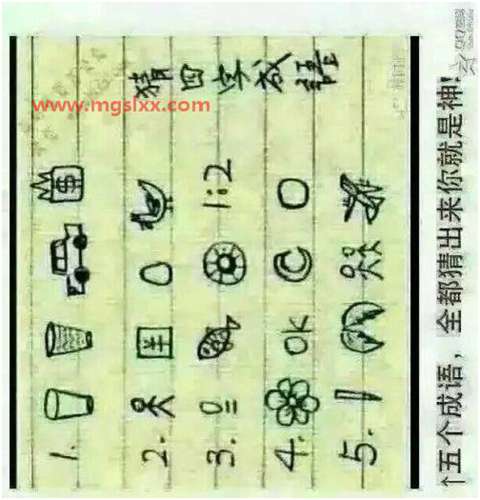 www.mgslxx.com
猜四字成語
1. $
2.
3. 1:2
4. OK
5.
↑五个成语,全都猜出来你就是神!